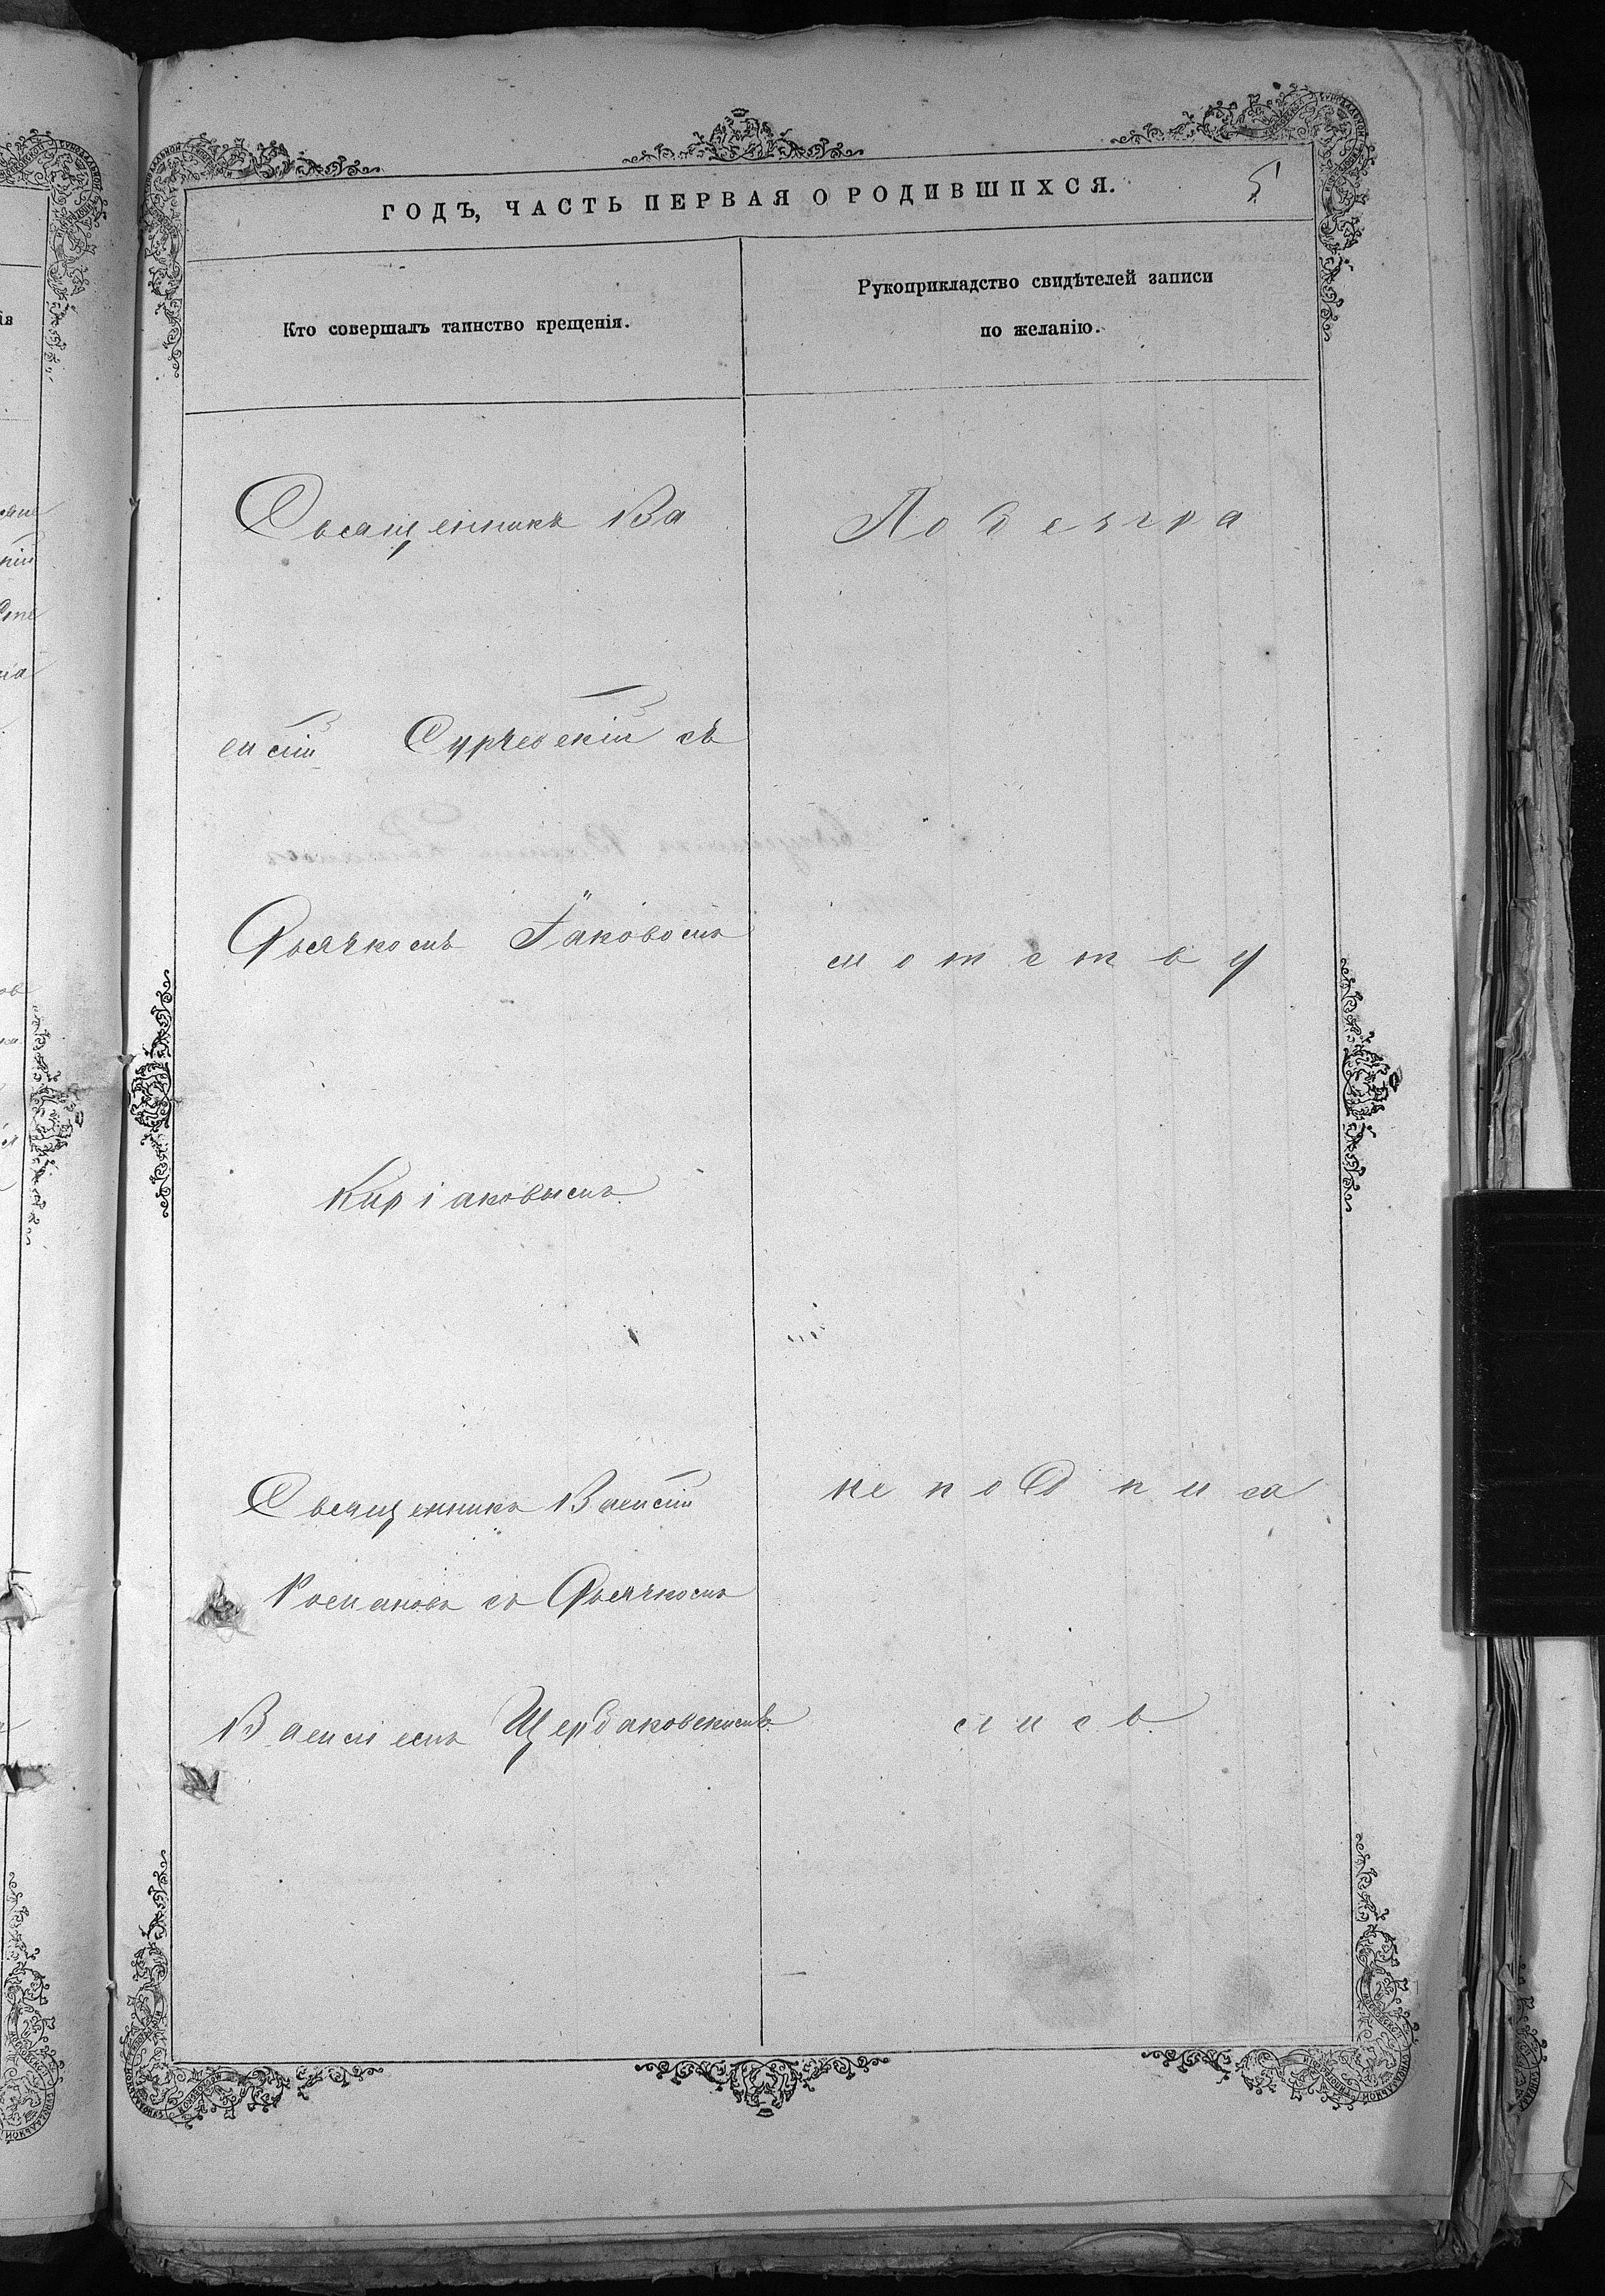 ГОДЪ, ЧАСТЬ ПЕРВАЯ О РОДИВШИХСЯ.
5
Кто совершалъ таинство крещенія.
Рукоприкладство свидѣтелей записи
по желанію.
Священникъ Ва
силій Сурчевскій съ
Дьячкомъ Іаковомъ
Киріаковымъ
Священникъ Василій
Романовъ съ Дьячкомъ
Василіемъ Щербаковскимъ
По безгра
мотству
не подписа
лись